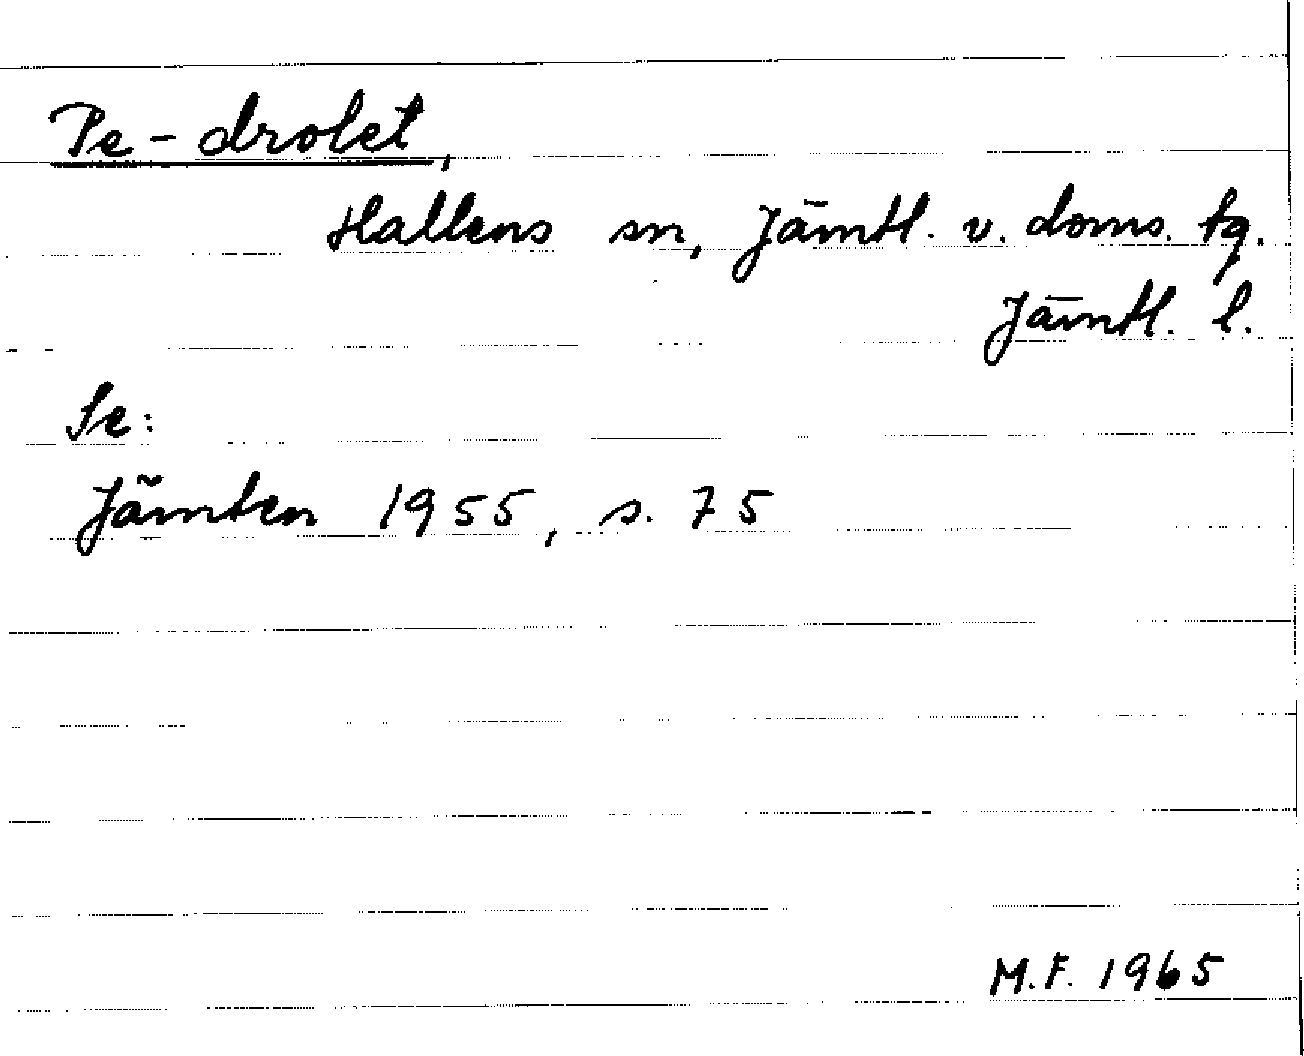 Pe-drolet,
Hallens sn, Jämtl. v. doms. tg.
Jämtl. l.
Se:
Jämten 1955, s. 75
M.F. 1965